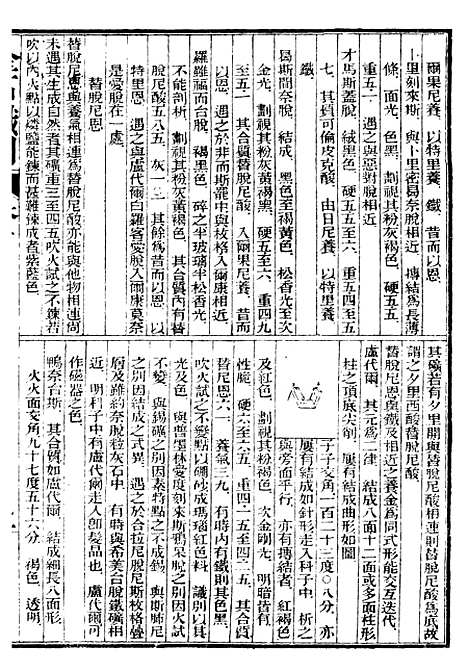 爾果尼養　以特里養　鐵　昔而以恩
卜里刻來斯　與卜里密易奈脫相近　摶結爲長薄
條　面光　色黑　劃視其粉灰褐色　硬五五
重五一　遇之與惡對脫相近
才馬斯蓋脫　絨黑色　硬五五至六　重五四至五
七　其質可倫皮克酸　由日尼養　以特里養
鐵
曷斯間奈脫　結成　黑色至褐黃色　松香光至次
金光　劃視其粉灰黃褐黑　硬五至六　重四九
至五一　其合質替脫尼酸　入爾果尼養　昔而
以恩　遇之於非而斯罷中與枝格入爾康相近
羅雖福而台脫　褐黑色　碎之半玻璃半松香光
不能剖析　劃視其粉灰黃褐色　其合質內有替
脫尼酸五八五　灰一　三　其餘爲昔而以恩
替斯尼替　遇之與盧代爾白羅客愛脫入爾康莫奈
是愛脫在一處
替脫尼恩
替脫尼恩與養氣相連爲替脫尼酸亦能與他物相連尚
未遇其生成自然者其礦重三至四五吹火試之不鎔若
吹以內火點以燐鹽能鎔而甚難鎔成者紫蔭色
其礦若有夕里開與替脫尼酸相連則替脫尼酸爲底故
謂之夕里西酸替脫尼酸
替脫尼恩與鐵及相近之養金爲同式形能交互迭代
盧代爾　其元爲二律　結成八面十二面或多面而
柱之頂底尖削　屢有結成曲形如圖
子子交角一百二十三度○八分　亦
屢有結成如針形走入科子中　析之
與旁面平行　亦有摶結者　紅褐色
及紅色　劃視其粉淡褐色　次金剛光　明暗皆有
性脆　硬六至六五　重四一五至四二五　其合質
替尼恩六一　養氣三九　有時內有鐵則其色黑
吹火試之不變點以硼砂成瑪瑙紅色料　識別以其
光及色　與替墨林愛度刻來斯鴉呆脫之別因火試
不變　與錫礦之別因素特點之不成錫　與斯聘尼
之別因結成之式異　遇之於合拉尼脫尼斯枝格疊
層及雜約奈脫粒灰石中　有時與希美台脫鐵礦相
近　明科子中有盧代爾走入卽髮晶也　盧代爾可
作磁器之色
鴨奈台斯　其合質如盧代爾　結成細長八面形
火火面交角九十七度五十六分　褐色　透明